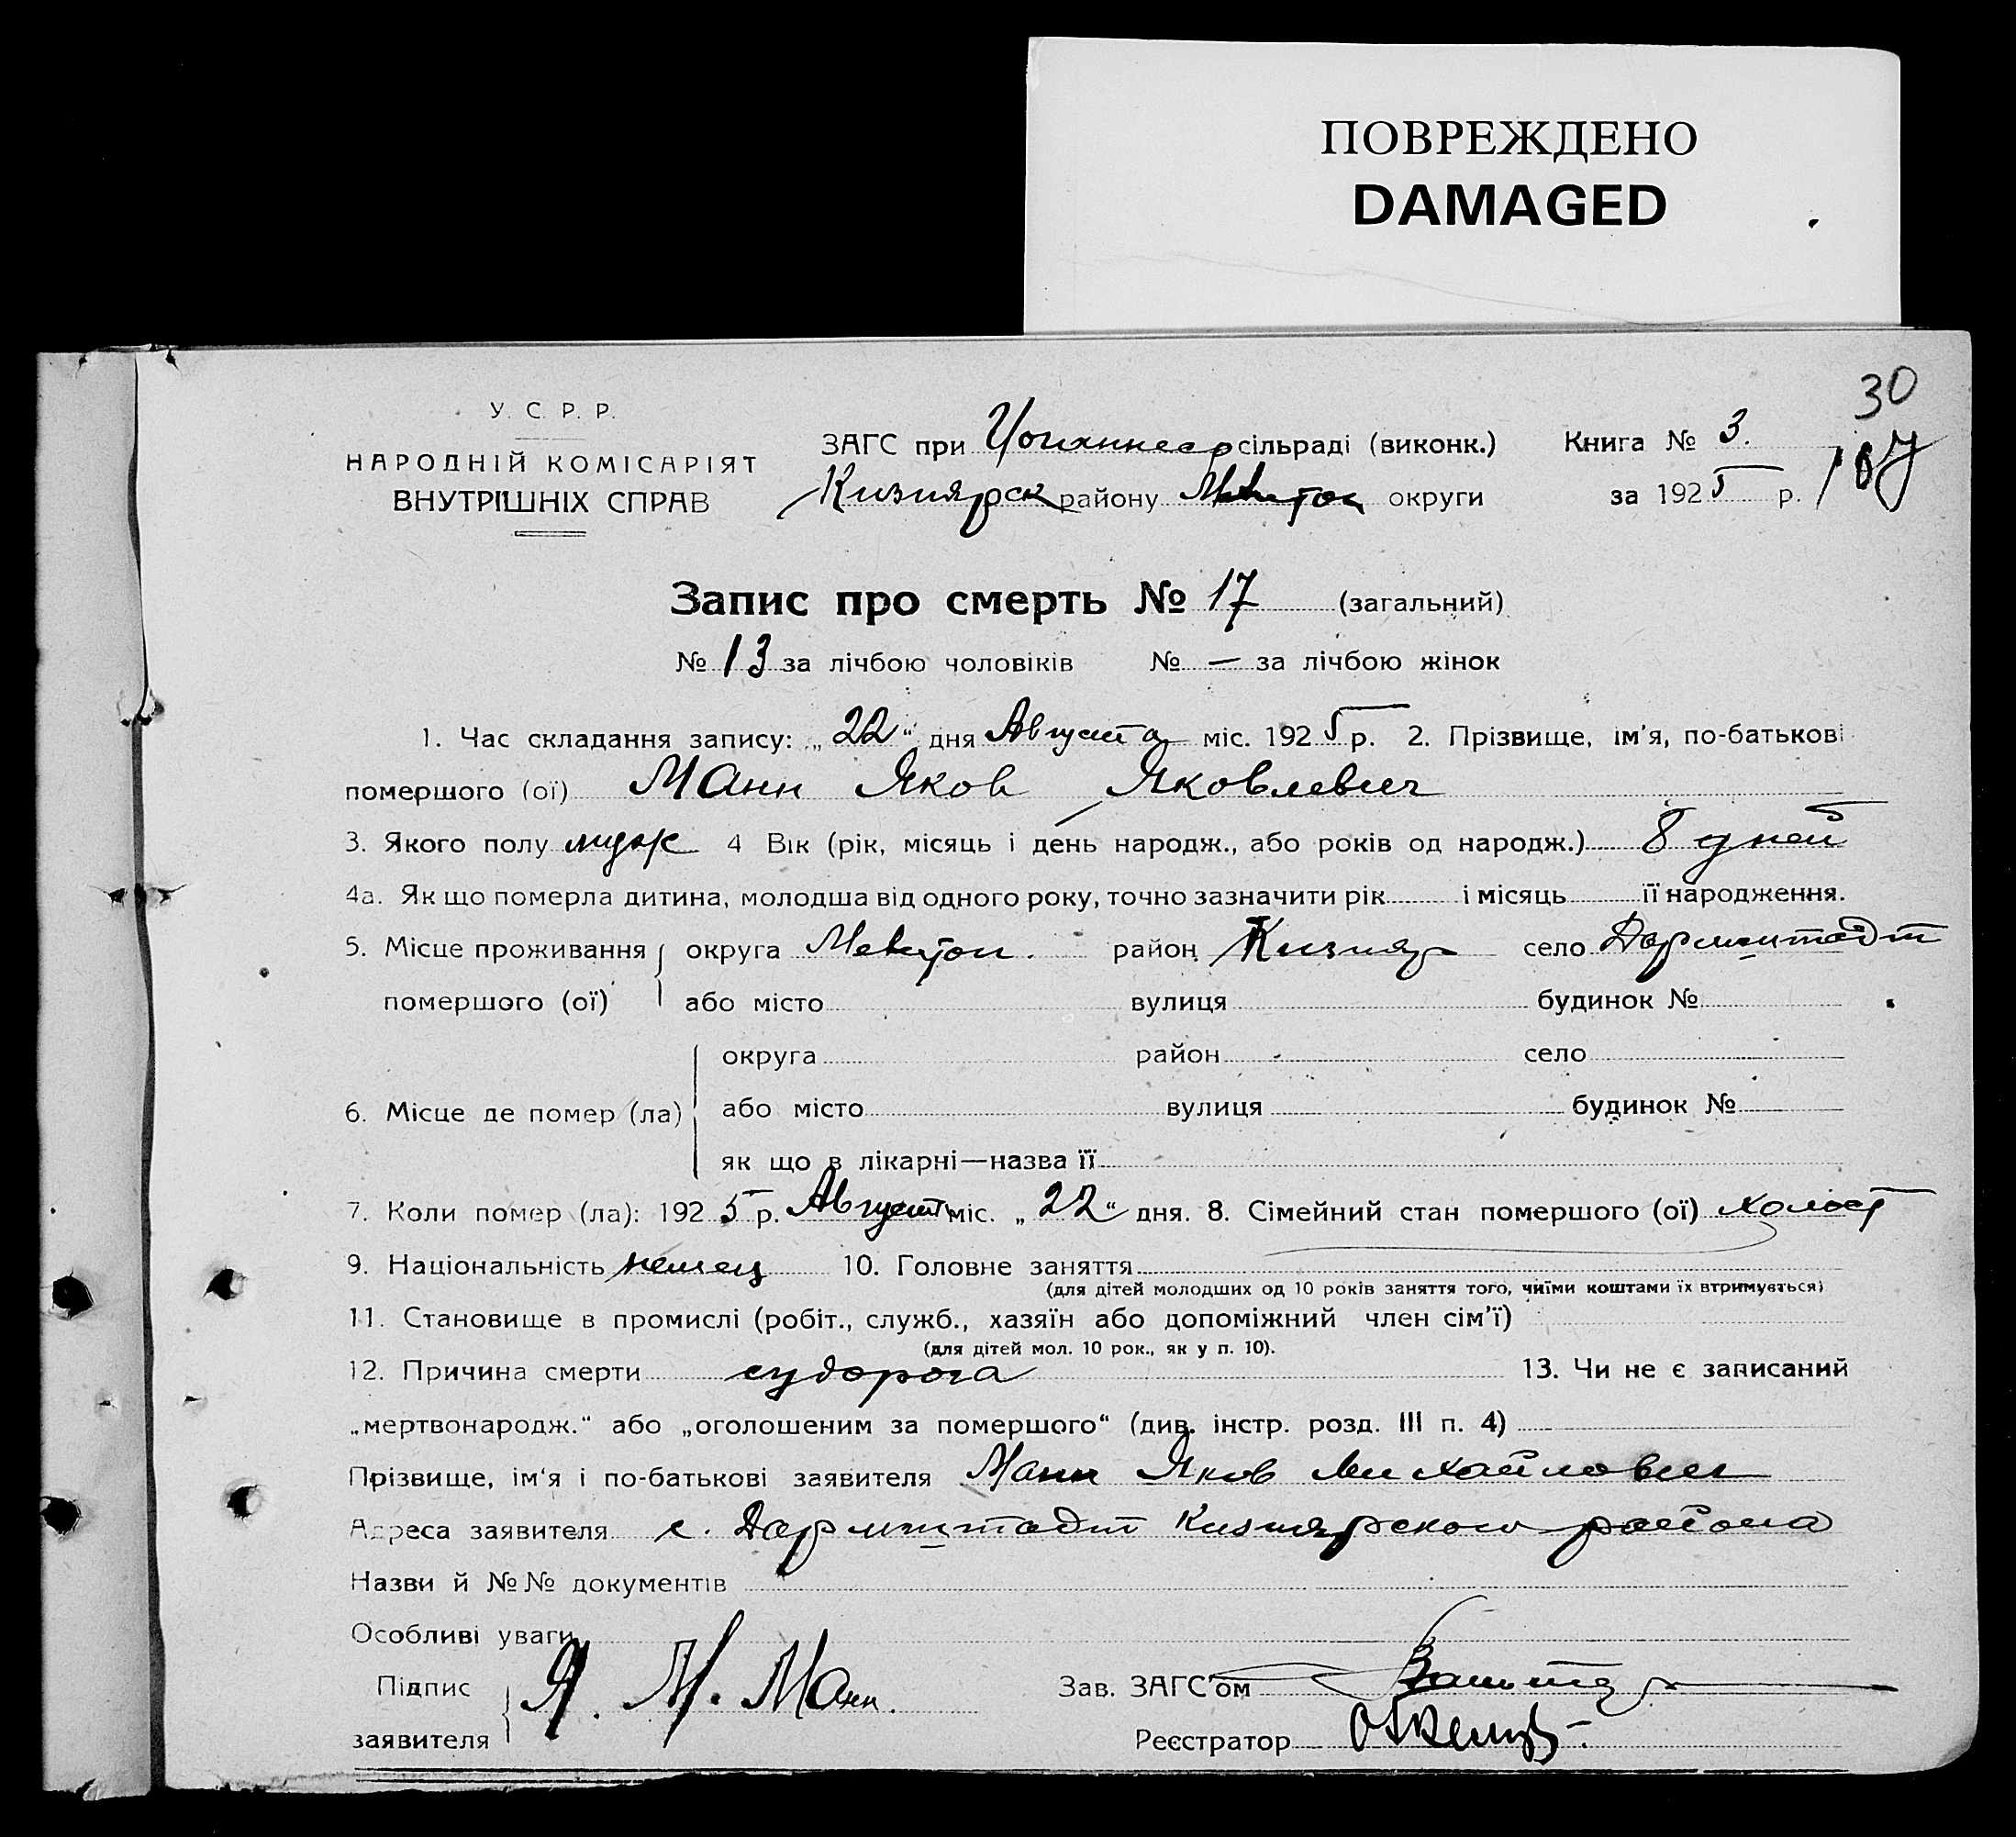 ПОВРЕЖДЕНО
DAMAGED
30
У. С. Р. Р.
НАРОДНІЙ КОМІСАРІЯТ
ВНУТРІШНІХ СПРАВ
ЗАГС при сільраді (виконк.) Книга № 3.
Кизиярск району округи за 1925 р. 107
Запис про смерть № 17 (загальний)
№ 13 за лічбою чоловіків № — за лічбою жінок
1. Час складання запису: „22“ дня Августа міс. 1925 р. 2. Прізвище, ім'я, по-батькові
помершого (ої) Манн Яков Яковлевич
3. Якого полу муж 4 Вік (рік, місяць і день народж., або років од народж.) 8 дней
4а. Як що померла дитина, молодша від одного року, точно зазначити рік і місяць її народження.
5. Місце проживання округа Мелитоп. район Кизияр село Дармштадт
помершого (ої) або місто вулиця будинок №
округа район село
6. Місце де помер (ла) або місто вулиця будинок №
як що в лікарні—назва її
7. Коли помер (ла): 1925 р. Август міс. „22“ дня. 8. Сімейний стан помершого (ої) холост
9. Національність немец 10. Головне заняття
(для дітей молодших од 10 років заняття того, чиїми коштами їх втримується)
11. Становище в промислі (робіт., служб., хазяїн або допоміжний член сім'ї)
(для дітей мол. 10 рок., як у п. 10).
12. Причина смерти судорога 13. Чи не є записаний
„мертвонародж.“ або „оголошеним за помершого“ (див. інстр. розд. III п. 4)
Прізвище, ім'я і по-батькові заявителя Манн Яков Михайлович
Адреса заявителя с. Дармштадт Кизиярского района
Назви й №№ документів
Особливі уваги
Підпис
заявителя Я. М. Манн.
Зав. ЗАГС'ом
Реєстратор